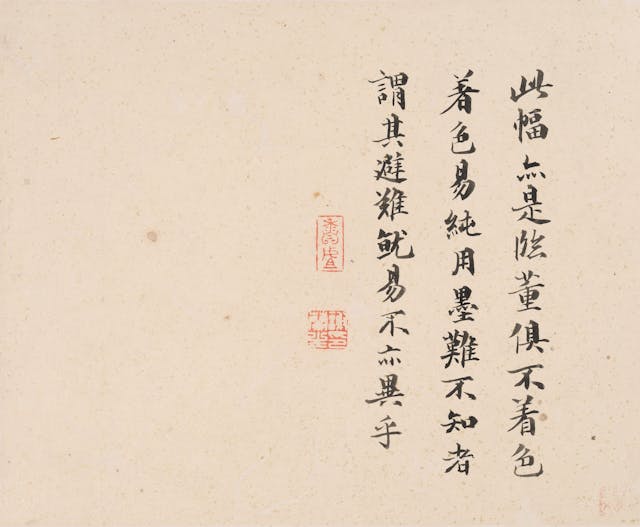 此幅亦是臨董俱不着色
著色易純用墨難不知者
謂其避難就易不亦異乎